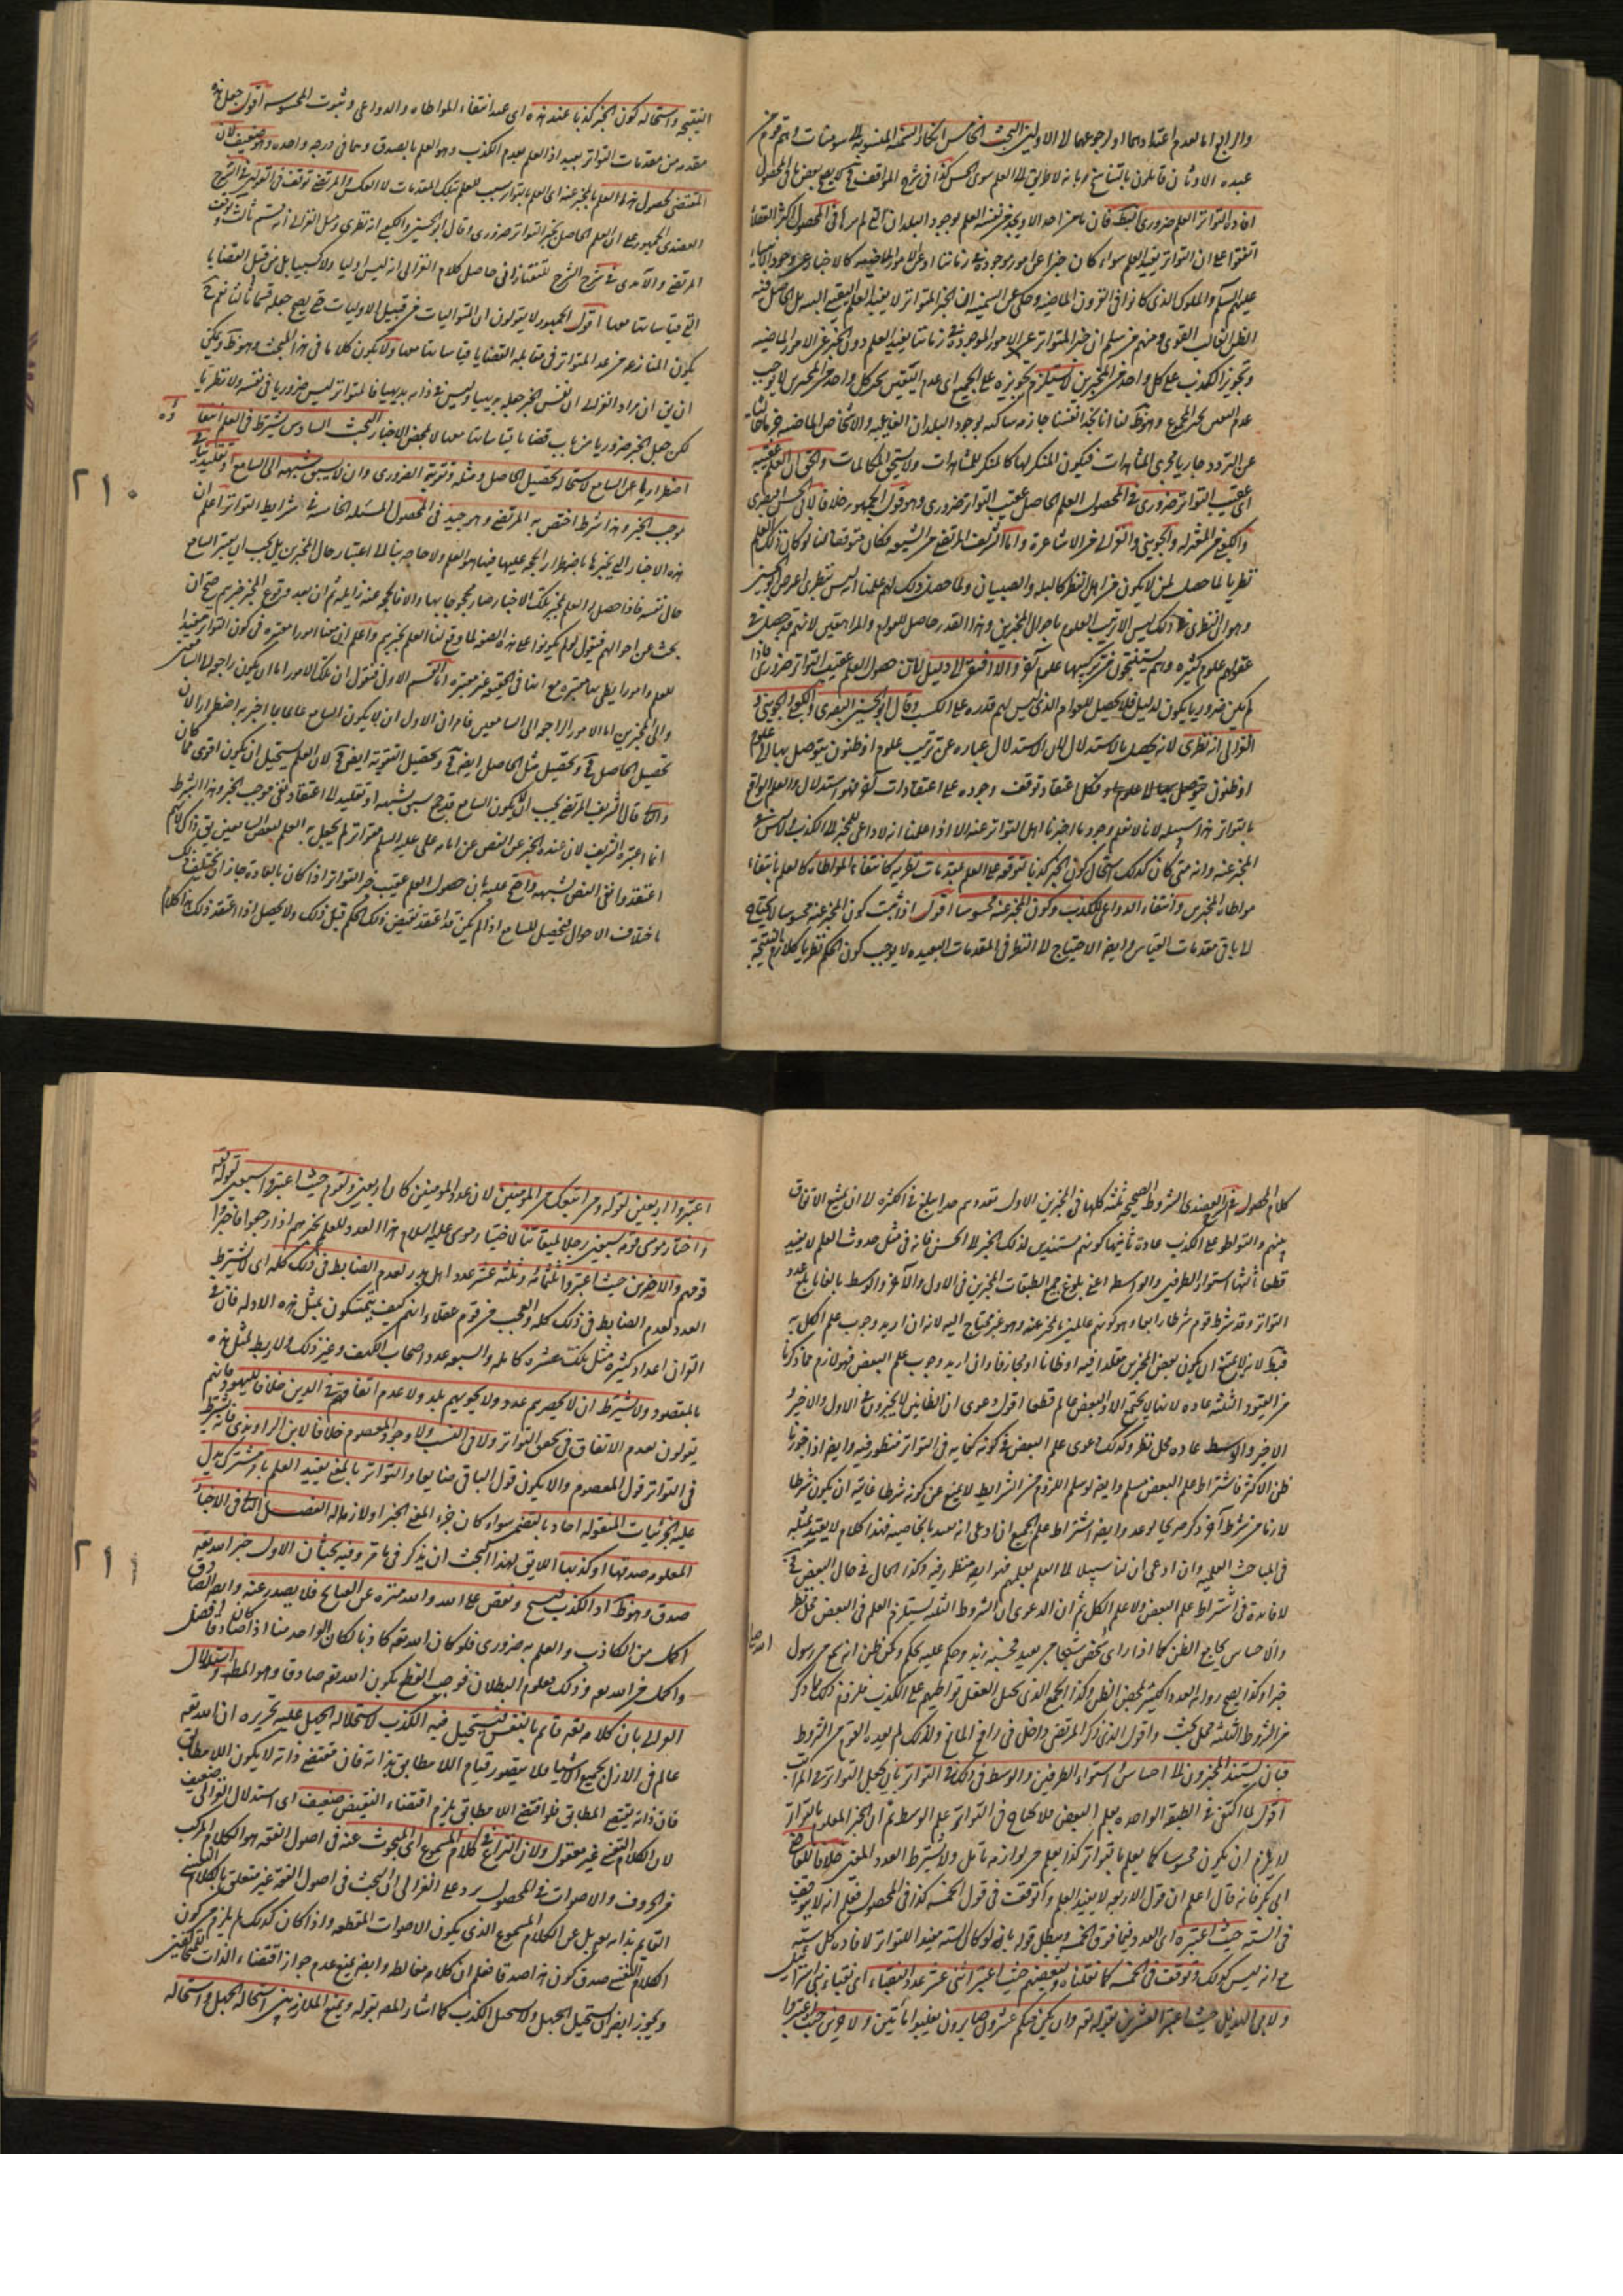 والرابع اما لعدم اعتدادهما او لرجوعهما الى الاولين البحث الخامس انكار السمنية المنسوبة الى سومنات وهم قوم من
عبدة الاوثان قائلون بالتناسخ وبانه لا طريق الى العلم سوى الحس كذا في شرح المواقف
افادة التواتر العلم ضروري فان ما من احد الا ويجد من نفسه العلم بوجود البلدان التي لم يرها في المحصول اكثر العقلاء
اتفقوا على ان التواتر يفيد العلم سواء كان خبرا عن امور موجودة في زماننا او عن الامور الماضية كالاخبار عن وجود الانبياء
عليهم السلم والملوك الذي كانوا في القرون الماضية وحكى عن السمنية ان الخبر المتواتر لا يفيد العلم اليقيني البتة بل الحاصل منه
الظن الغالب القوي ومنهم من سلم ان خبر المتواتر عن الامور الموجودة في زماننا يفيد العلم دون الخبر عن الامور الماضية
وتجويز الكذب على كل واحد من المخبرين لا يستلزم تجويزه على الجميع اي عدم اليقين بخبر كل واحد من المخبرين لا يوجب
عدم اليقين بخبر المجموع وهو ظ لنا انا نجد انفسنا جازمة ساكنة بوجود البلدان الغايبة والاشخاص الماضية
عن التردد جاريا مجرى المشاهدات فيكون المنكر لها كالمنكر للمشاهدات ولا يستحق المكالمات والحق ان العلم عقيبه
اي عقيب التواتر ضروري في المحصول العلم الحاصل عقيب التواتر ضروري وهو قول الجمهور خلافا لابي الحسين البصري
والكعبي من المعتزلة والجويني والغزالي من الاشاعرة واما الشريف المرتضى من الشيعة فكان متوقفا لنا لو كان ذلك العلم
نظريا لما حصل لمن لا يكون من اهل النظر كالبله والصبيان ولما حصل ذلك لهم علمنا انه ليس بنظري اعترض ابو الحسين
وهو ان النظري في ذلك ليس الا ترتيب العلوم باحوال المخبرين وهذا القدر حاصل للعوام والمراهقين لانهم قد حصل في
عقولهم علوم كثيرة وهم يستنتجون من تركيبها علوم آخر والا افتقر الى دليل بان حصول العلم عقيب التواتر ضروري
لم يكن ضروريا يكون لدليل فلا يحصل للعوام الذي ليس لهم قدرة على الكسب وقال ابو الحسين البصري والكعبي والجويني و
الغزالي انه نظري لانه يحصل بالاستدلال لان الاستدلال عبارة عن ترتيب علوم او ظنون يتوصل بها الى علوم
او ظنون فكل اعتقاد توقف وجوده على اعتقادات اخر فهو استدلال والعلم الواقع
بالتواتر هذا سبيله لانا لا نعلم وجود ما اخبرنا اهل التواتر عنه الا اذا علمنا انه لا داعي للمخبر الى الكذب
المخبر عنه وانه متى كان كذلك استحال كون الخبر كذبا لتوقفه على العلم بمقدمات نظرية كانتفاء المواطاة كالعلم بانتفاء
مواطاة المخبرين وانتفاء الدواعي للكذب وكون المخبر عنه محسوسا اقول اذا ثبت كون المخبر عنه محسوسا لا يحتاج
الى باقي مقدمات القياس وايض الاحتياج الى النظر في المقدمات البعيدة لا يوجب كون الحكم نظريا كلازم النتيجة
النتيجة واستحالة كون الخبر كذبا عند هذه اي عند انتفاء المواطاة والدواعي وثبوت المحسوسية اقول جعل هذه
مقدمة من مقدمات التواتر بعيد اذ العلم بعدم الكذب وهو العلم بالصدق وهما في درجة واحدة وهو ضعيف لان
المقتضي لحصول هذا العلم بالمخبر عنه اي العلم بالتواتر سبب للعلم بتلك المقدمات لا العكس والمرتضى توقف في القولين في الشرح
العضدي الجمهور على ان العلم الحاصل بخبر التواتر ضروري وقال ابو الحسين والكعبي انه نظري وميل الغزالي انه قسم ثالث وتوقف
المرتضى والآمدي في شرح الشرح للتفتازاني حاصل كلام الغزالي انه ليس اوليا ولا كسبيا بل من قبيل القضايا
التي قياساتها معها اقول الجمهور لا يقولون ان المتواترات من قبيل الاوليات حتى يصح جعله قسما ثالثا نعم
يكون المنازع من عد المتواتر في مقابلة القضايا قياساتها معها ولا يكون كلاما في هذا المبحث وهو ظ ويمكن
ان يق ان مراد الغزالي ان نفس الخبر جعله بديهيا وليس في ذاته بديهيا فالمتواتر ليس ضروريا في نفسه ولا نظريا
لكن جعل الخبر ضروريا من باب قضايا قياساتها معها لا لمحض الاخبار البحث السادس يشترط في العلم انتفاؤه
اضطراريا عن السامع لاستحالة تحصيل الحاصل ومثله وتقوية الضروري وان لا يسبق شبهة الى السامع او تقليد ينافي
موجب الخبر وهذا شرط اختص به المرتضى وهو جيد في المحصول المسئلة الخامسة في شرايط التواتر اعلم ان
هذه الاخبار التي يخبرها باضطرار الحجة عليها فيها هو العلم ولا حاجة بنا الى اعتبار حال المخبرين بل يجب ان يعتبر السامع
حال نفسه فاذا حصل له العلم بخبر تلك الاخبار صار محجوجا بها والا فالحجة عنه زايلة ثم ان بعد وقوع المخبر بخبرهم صح ان
بحث عن احوالهم فنقول لو لم يكونوا على هذه الصفة لما وقع لنا العلم بخبرهم واعلم ان هنا امورا معتبرة في كون التواتر مفيدا
للعلم وامورا يظن بها معتبرة مع انها في الحقيقة غير معتبرة اما القسم الاول فنقول ان تلك الامور اما ان يكون راجعا الى السامعين
والى المخبرين اما الامور الراجعة الى السامعين فامران الاول ان لا يكون السامع عالما بما اخبر به اضطرارا لان
تحصيل الحاصل مح وتحصيل مثل الحاصل ايض مح وتحصيل التقوية ايض مح لان العلم يستحيل ان يكون اقوى مما كان
والثاني قال الشريف المرتضى يجب ان يكون السامع قد سبق بشبهة او تقليد الى اعتقاد نفي موجب الخبر وهذا الشرط
انما اعتبره الشريف لان عنده الخبر عن النص عن امامة علي عليه السلم متواتر لم يحصل به العلم لبعض السامعين
اعتقدوا نفي النص لشبهة واحتج عليه بان حصول العلم عقيب خبر التواتر اذا كان بالعادة جاز ان يختلف ذلك
باختلاف الاحوال فيحصل للسامع اذا لم يكن قد اعتقد نقيض ذلك الحكم قبل ذلك ولا يحصل اذا اعتقد ذلك هذا كلام
٢١٠
كلام المحصول في شرح العضدي الشروط الصحيح ثلثة كلها في المخبرين الاول تعددهم تعددا يبلغ في الكثرة الى ان يمتنع الاتفاق
بينهم والتواطؤ على الكذب عادة ثانيها كونهم مستندين لذلك الخبر الى الحس فانه في مثل حدوث العلم لا يفيد
قطعا ثالثها استواء الطرفين والواسطة اعني بلوغ جميع الطبقات المخبرين في الاول والآخر والوسط بالغا ما بلغ عدد
التواتر وقد شرط قوم شرطا رابعا وهو كونهم عالمين بالمخبر عنه وهو غير محتاج اليه لانه ان اريد وجوب علم الكل به
فبط لانه لا يمتنع ان يكون بعض المخبرين مقلدا فيه او ظانا او مجازفا وان اريد وجوب علم البعض فهو لازم مما ذكرنا
من القيود الثلثة عادة لانها لا يجتمع الا والبعض عالم قطعا اقول دعوى ان الظانين لا يخبرون في الاول والاخير و
الاخير والوسط عادة محل نظر وكذلك دعوى علم البعض في كونه كفاية في التواتر منظور فيه وايض اذا جوزنا
ظن الاكثر فاشتراط علم البعض مسلم وايض لو سلم اللزوم من الشرايط لا يمنع عن كونه شرطا غايته ان يكون شرطا
لازما من شرط آخر ذكر صريحا لوعد وايض اشتراط علم الجميع ان ادعى انه يفيد بالخاصية فهذا كلام لا يفيد بمثله
في المباحث العلمية وان ادعى ان لنا سبيلا الى العلم بعلمهم فهو ايض منظور فيه وكذا الحال في حال البعض
لا فائدة في اشتراط علم البعض ولا علم الكل ثم ان الدعوى ان الشروط الثلثة يستلزم العلم في البعض محل نظر
والاحساس يجامع الظن كما اذا راى شخص شبحا من بعيد فحسبه زيد وحكم عليه بحكم
خبرا وكذا يصح رواية العدد الكثير لمحض الظن وكذا الجمع الذي يحيل العقل تواطيهم على الكذب فلزوم ذلك مما ذكر
من الشروط الثلثة محل بحث واقول الذي ذكر المرتضى داخل في رافع المانع ولذلك لم يعده القوم من الشروط
فبان يستند المخبرون الى احساس واستواء الطرفين والوسط في ذلك التواتر بان يحصل التواتر في المراتب
اقول لما اكتفى في الطبقة الواحدة بعلم البعض فلا يحتاج في التواتر علم الوسط ثم ان الخبر المعلوم بالتواتر
لا يلزم ان يكون محسوسا كما يعلم بالتواتر كذا يعلم من لوازمه تأمل ولا يشترط العدد المعين خلافا للقاضي
ابي بكر فانه قال اعلم ان قول الاربعة لا يفيد العلم واتوقف في قول الخمسة كذا في المحصول فعلم انه لا يتوقف
في الستة حيث اعتبره اي العدد فيما فوق الخمسة ويبطل قوله بانه لو كان الستة مفيدا للتواتر لافاده كل ستة
مع انه ليس كذلك وتوقف في الخمسة كما نقلناه ولبعضهم حيث اعتبر اثنى عشر عدد النقباء اي نقباء بني اسرائيل
ولابي الهذيل حيث اعتبر العشرين بقوله تع وان يكن منكم عشرون صابرون يغلبوا مأتين ولاخرين حيث اعتبروا
اعتبروا اربعين لقوله ومن اتبعك من المؤمنين لان عدد المؤمنين كان اربعين ولقوم حيث اعتبروا سبعين لقوله تع
واختار موسى قومه سبعين رجلا لميقاتنا لاختيار موسى عليه السلام هذا العدد للعلم بخبرهم اذا رجعوا فاخبروا
قومهم والاخرين حيث اعتبروا ثلثمائة وثلثة عشر عدد اهل بدر لعدم الضابط في ذلك كله اي لا يشترط
العدد لعدم الضابط في ذلك كله والعجب من قوم عقلاء انهم كيف يتمسكون بمثل هذه الادلة فان في
القران اعداد كثيرة مثل تلك عشرة كاملة والسبعة عدد اصحاب الكهف وغير ذلك ولا ربط لمثل هذه
بالمقصود ولا يشترط ان لا يحصرهم عدد ولا يحويهم بلد ولا عدم اتفاقهم في الدين خلافا لليهود فانهم
يقولون بعدم الاتفاق في تحقق التواتر ولا في النسب ولا وجود المعصوم خلافا لابن الراوندي فانه يشترط
في التواتر قول المعصوم والا يكون قول الباقي ضايعا والتواتر بالمعنى يفيد العلم بالمشترك يدل
عليه الجزئيات المنقولة احاد بالتضمن سواء كان جزء المعنى الخبر او لازما له الفصل الثاني في الاخبار
المعلوم صدقها او كذبها اللايق بهذا البحث ان يذكر في ما مر وفيه بحثان الاول خبر الله تعه
صدق وهو ظ اذ الكذب قبيح ونقص على الله والله منزه عن القبايح فلا يصدر عنه وايض الصادق
اكمل من الكاذب والعلم به ضروري فلو كان الله تعه كاذبا لكان الواحد منا اذا كان صادقا افضل
واكمل من الله تعه وذلك معلوم البطلان فوجب القطع بكون الله تعه صادقا وهو المطلوب واستدلال
الغزالي بان كلامه تعه قائم بالنفس فيستحيل فيه الكذب لاستحالة الجهل عليه تقريره ان الله تعه
عالم في الازل بجميع الاشياء فلا يتصور قيام اللا مطابق بذاته فان مقتضى ذاته لا يكون اللا مطابق
فان ذاته يقتضي المطابق فلو اقتضى اللا مطابق يلزم اقتضاء النقيضين ضعيف اي استدلال الغزالي ضعيف
لان الكلام النفسي غير معقول ولان النزاع في كلام المسموع اي المبحوث عنه في اصول الفقه هو الكلام المركب
من الحروف والاصوات في المحصول يرد على الغزالي ان البحث في اصول الفقه غير متعلق بالكلام النفسي
القائم بذاته تعه بل عن الكلام المسموع الذي يكون الاصوات المقطعة واذا كان كذلك لم يلزم من كون
الكلام النفسي صدق كون هذا صدقا فعلم ان كلامه مغالطة وايض يمنع عدم جواز اقتضاء الذات للنقيضين
ويجوز ايض ان يستحيل الجهل ولا يستحيل الكذب كما اشار المص بقوله ويمنع الملازمة بين استحالة الجهل واستحالة
٢١١